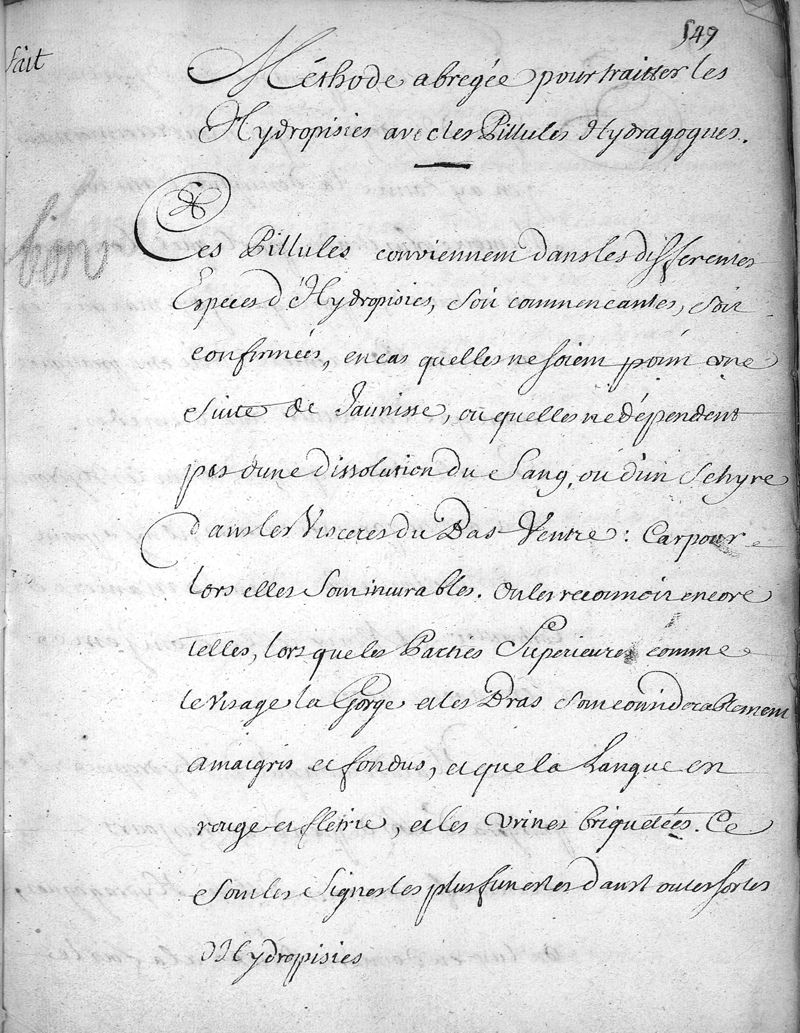 549
fait
Méthode abregée pour traitter les
Hydropisies avec les Pillules Hydragogues.
bon
Ces Pillules conviennent dans les differentes
Especes d'Hydropisies, soit commencantes, soit
confirmées, en cas quelles ne soient point une
suite de Jaunisse, ou quelles ne dépendent
pas d'une dissolution du Sang, ou d'un Schyre
dans les Visceres du Bas Ventre : Car pour
lors elles sont incurables. On les reconnoit encore
telles, lors que les Parties Superieures comme
le visage la Gorge et les Bras sont considerablement
amaigris et fondus, et que la Langue en
rouge et fletrie, et les Urines briquetées. Ce
sont les Signes les plus funestes dans toutes sortes
d'Hydropisies